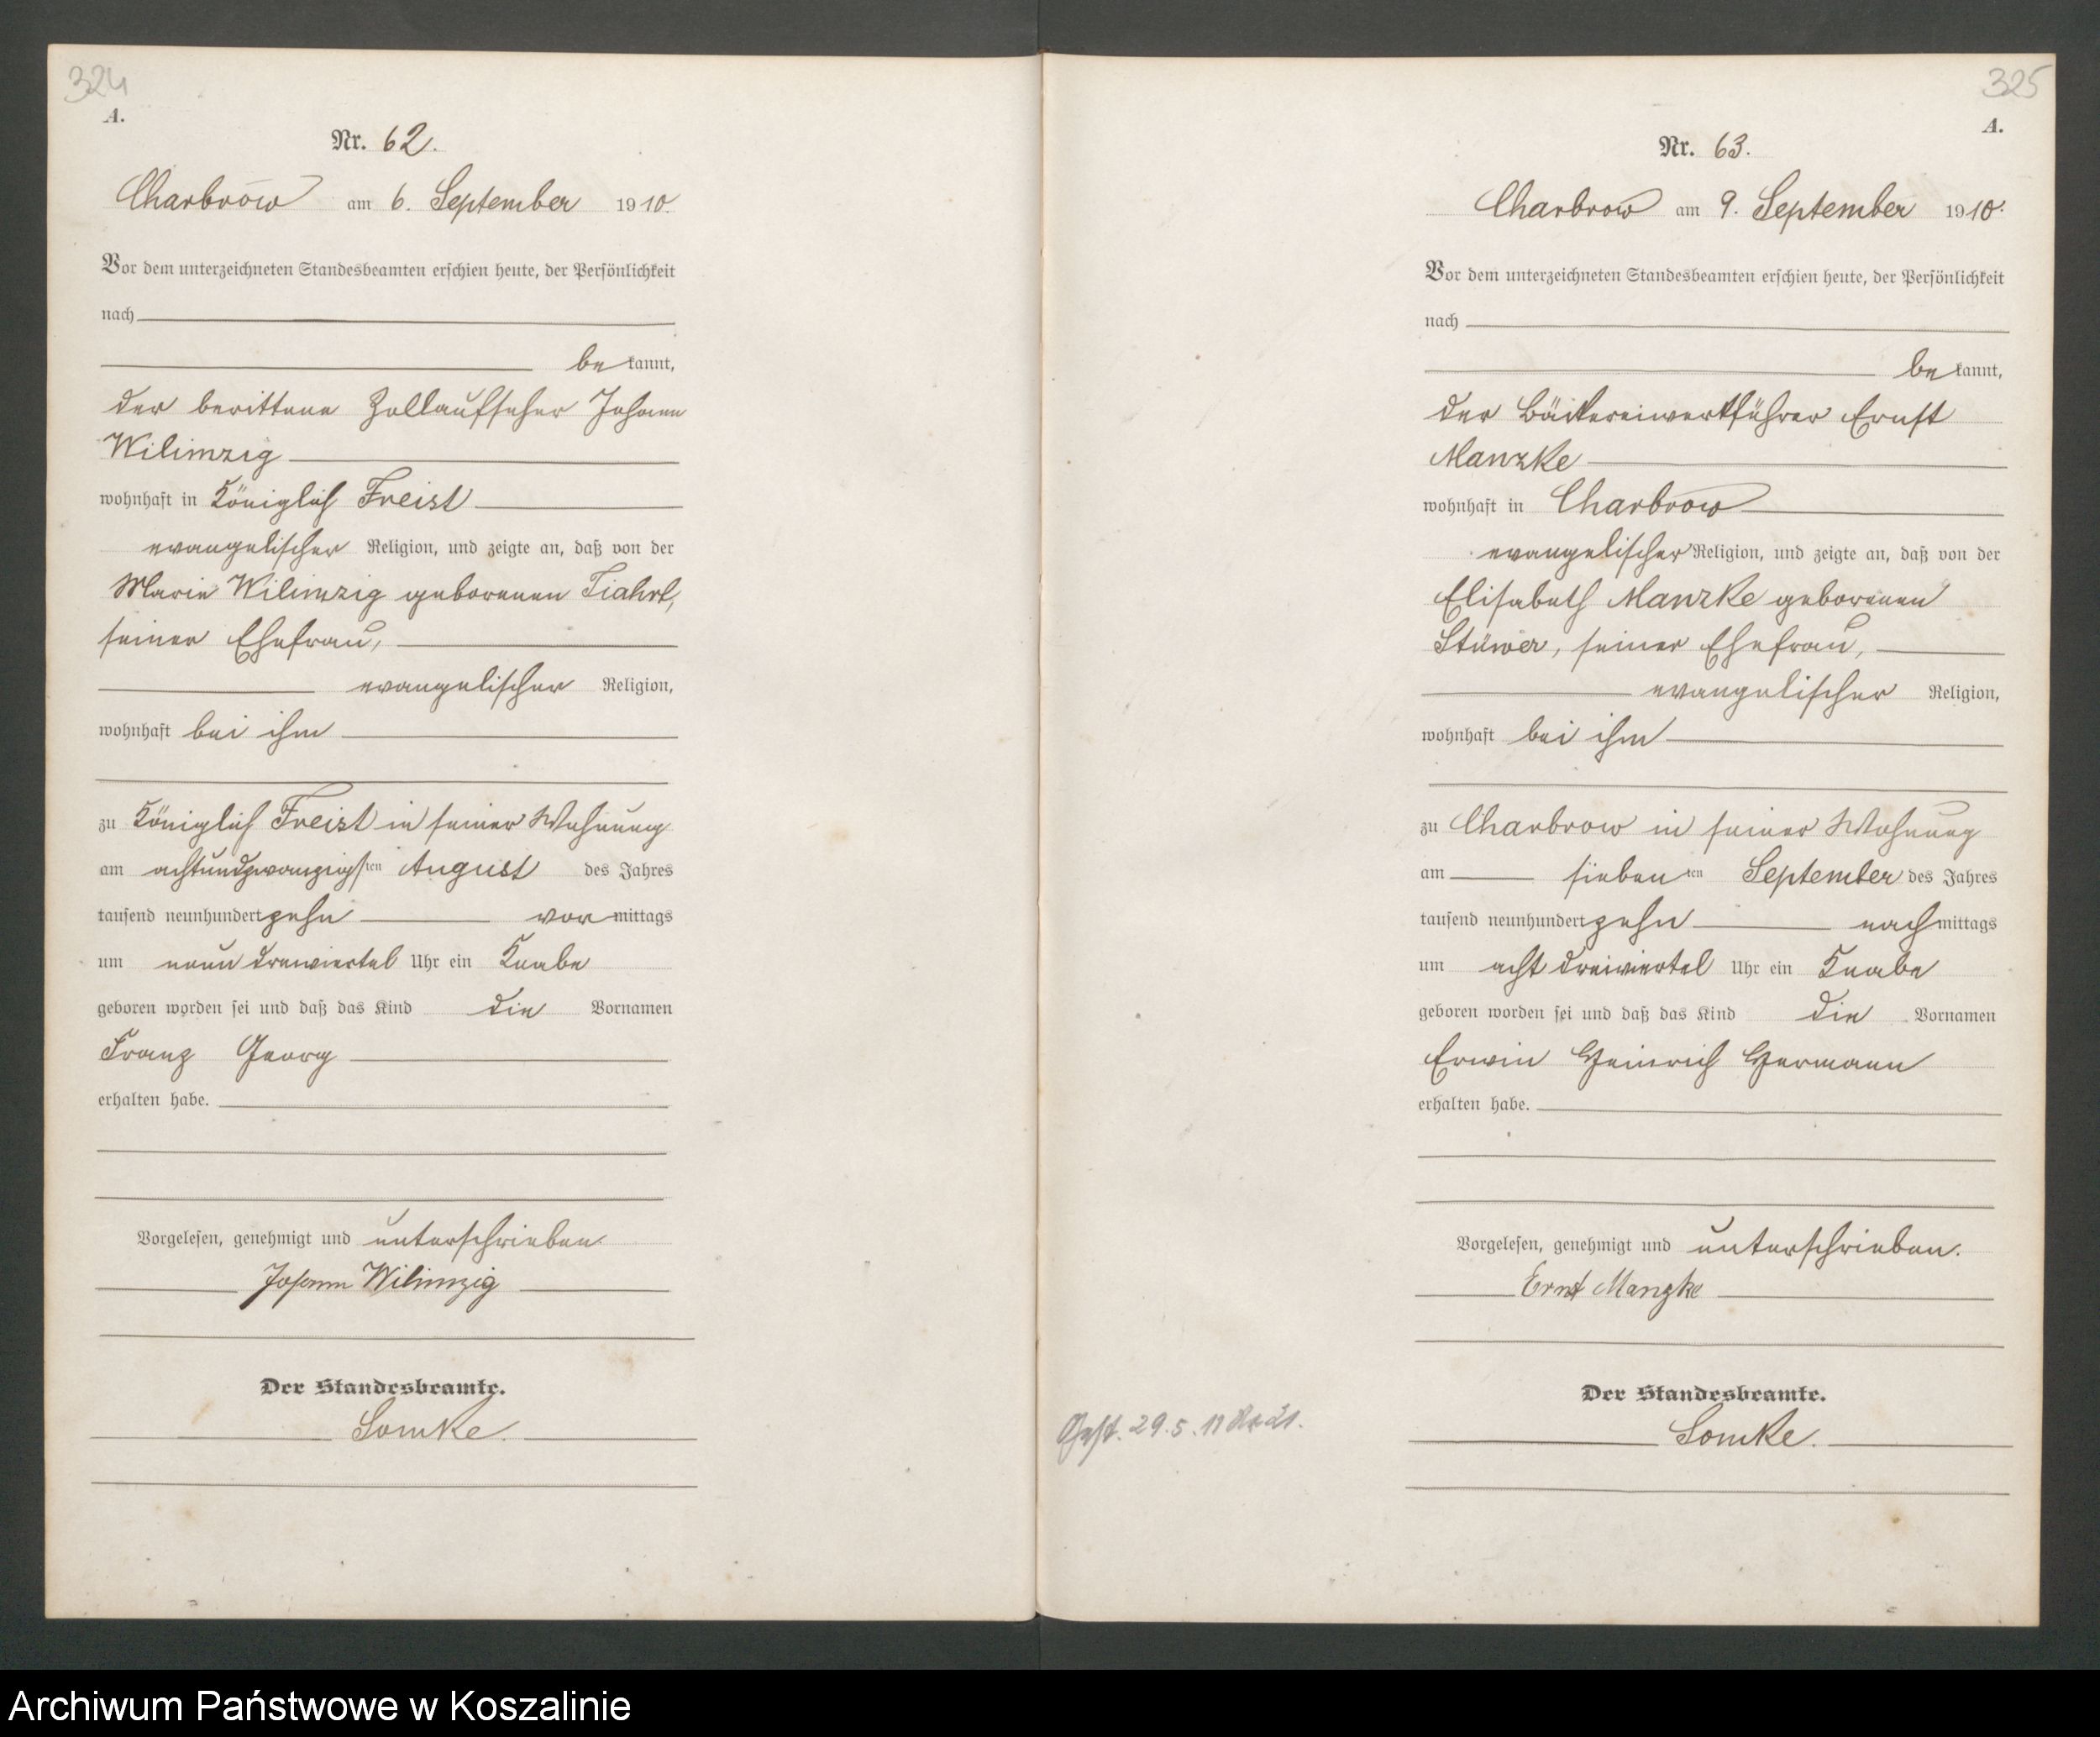 324
A.
Nr. 62.
Charbrow am 6. September 1910.
Vor dem unterzeichneten Standesbeamten erschien heute, der Persönlichkeit
nach
be kannt,
der berittene Zollaufseher Johann
Wilimzig
wohnhaft in Königlich Freist
evangelischer Religion, und zeigte an, daß von der
Marie Wilimzig geborenen Fiahrt,
seiner Ehefrau,
evangelischer Religion,
wohnhaft bei ihm
zu Königlich Freist in seiner Wohnung
am achtundzwanzigsten August des Jahres
tausend neunhundert zehn vor mittags
um neun dreiviertel Uhr ein Knabe
geboren worden sei und daß das Kind die Vornamen
Franz Georg
erhalten habe.
Vorgelesen, genehmigt und unterschrieben.
Johann Wilimzig
Der Standesbeamte.
Lomke.
325
A.
Nr. 63.
Charbrow am 9. September 1910.
Vor dem unterzeichneten Standesbeamten erschien heute, der Persönlichkeit
nach
be kannt,
der Bäckereiwerkführer Ernst
Manzke
wohnhaft in Charbrow
evangelischer Religion, und zeigte an, daß von der
Elisabeth Manzke geborenen
Stüwer, seiner Ehefrau,
evangelischer Religion,
wohnhaft bei ihm
zu Charbrow in seiner Wohnung
am siebenten September des Jahres
tausend neunhundert zehn nach mittags
um acht dreiviertel Uhr ein Knabe
geboren worden sei und daß das Kind die Vornamen
Erwin Heinrich Hermann
erhalten habe.
Vorgelesen, genehmigt und unterschrieben.
Ernst Manzke
Der Standesbeamte.
Lomke.
29.5.11
Archiwum Państwowe w Koszalinie